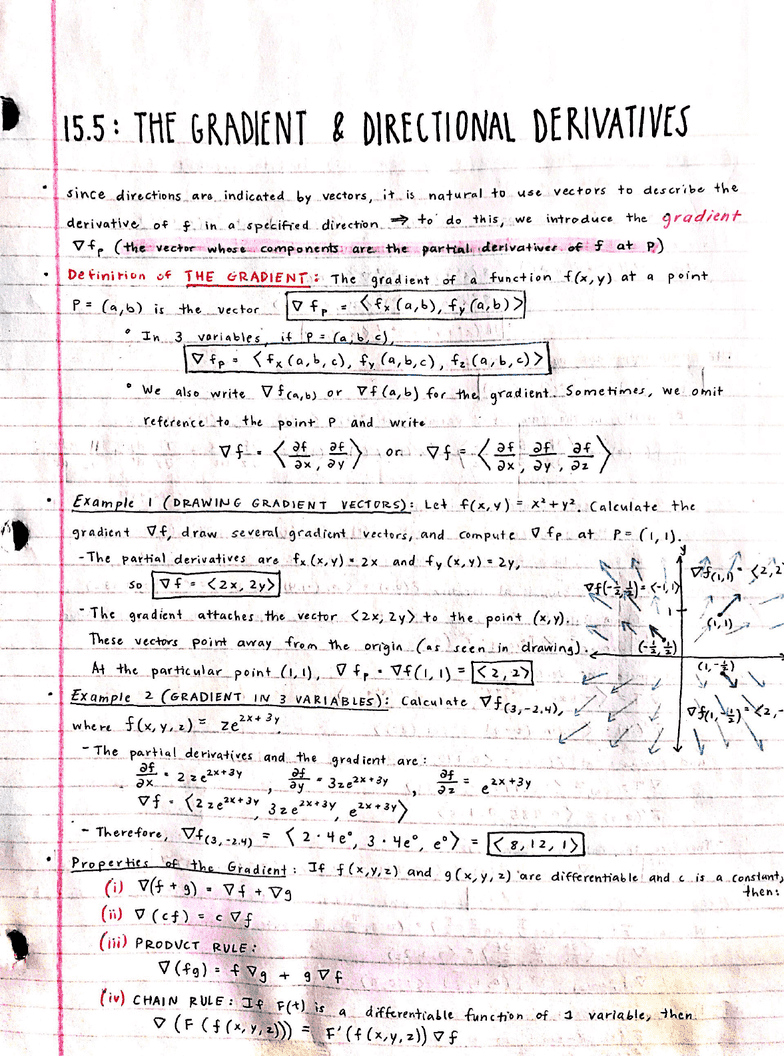 15.5: THE GRADIENT & DIRECTIONAL DERIVATIVES
• since directions are indicated by vectors, it is natural to use vectors to describe the
derivative of f in a specified direction ⇒ to do this, we introduce the gradient
∇fₚ (the vector whose components are the partial derivatives of f at P)
• Definition of THE GRADIENT: The gradient of a function f(x,y) at a point
P = (a,b) is the vector ∇fₚ = ⟨fₓ(a,b), f_y(a,b)⟩
° In 3 variables, if P = (a,b,c),
∇fₚ = ⟨fₓ(a,b,c), f_y(a,b,c), f_z(a,b,c)⟩
° We also write ∇f₍a,b₎ or ∇f(a,b) for the gradient. Sometimes, we omit
reference to the point P and write
∇f = ⟨∂f/∂x, ∂f/∂y⟩ or ∇f = ⟨∂f/∂x, ∂f/∂y, ∂f/∂z⟩
• Example 1 (DRAWING GRADIENT VECTORS): Let f(x,y) = x² + y². Calculate the
gradient ∇f, draw several gradient vectors, and compute ∇fₚ at P = (1,1).
- The partial derivatives are fₓ(x,y) = 2x and f_y(x,y) = 2y,
so ∇f = ⟨2x, 2y⟩
- The gradient attaches the vector ⟨2x, 2y⟩ to the point (x,y).
These vectors point away from the origin (as seen in drawing).
At the particular point (1,1), ∇fₚ = ∇f(1,1) = ⟨2,2⟩
y
∇f(1,1) = ⟨2,2
∇f(-1/2,1/2) = ⟨-1,1⟩
1
(1,1)
(-1/2, 1/2)
(1,-1/2)
∇f(1,-1/2) = ⟨2,-
• Example 2 (GRADIENT IN 3 VARIABLES): Calculate ∇f(3,-2,4),
where f(x,y,z) = ze^(2x+3y)
- The partial derivatives and the gradient are:
∂f/∂x = 2ze^(2x+3y), ∂f/∂y = 3ze^(2x+3y), ∂f/∂z = e^(2x+3y)
∇f = ⟨2ze^(2x+3y), 3ze^(2x+3y), e^(2x+3y)⟩
- Therefore, ∇f(3,-2,4) = ⟨2·4e⁰, 3·4e⁰, e⁰⟩ = ⟨8,12,1⟩
• Properties of the Gradient: If f(x,y,z) and g(x,y,z) are differentiable and c is a constant,
then:
(i) ∇(f + g) = ∇f + ∇g
(ii) ∇(cf) = c∇f
(iii) PRODUCT RULE:
∇(fg) = f∇g + g∇f
(iv) CHAIN RULE: If F(t) is a differentiable function of 1 variable, then
∇(F(f(x,y,z))) = F'(f(x,y,z))∇f